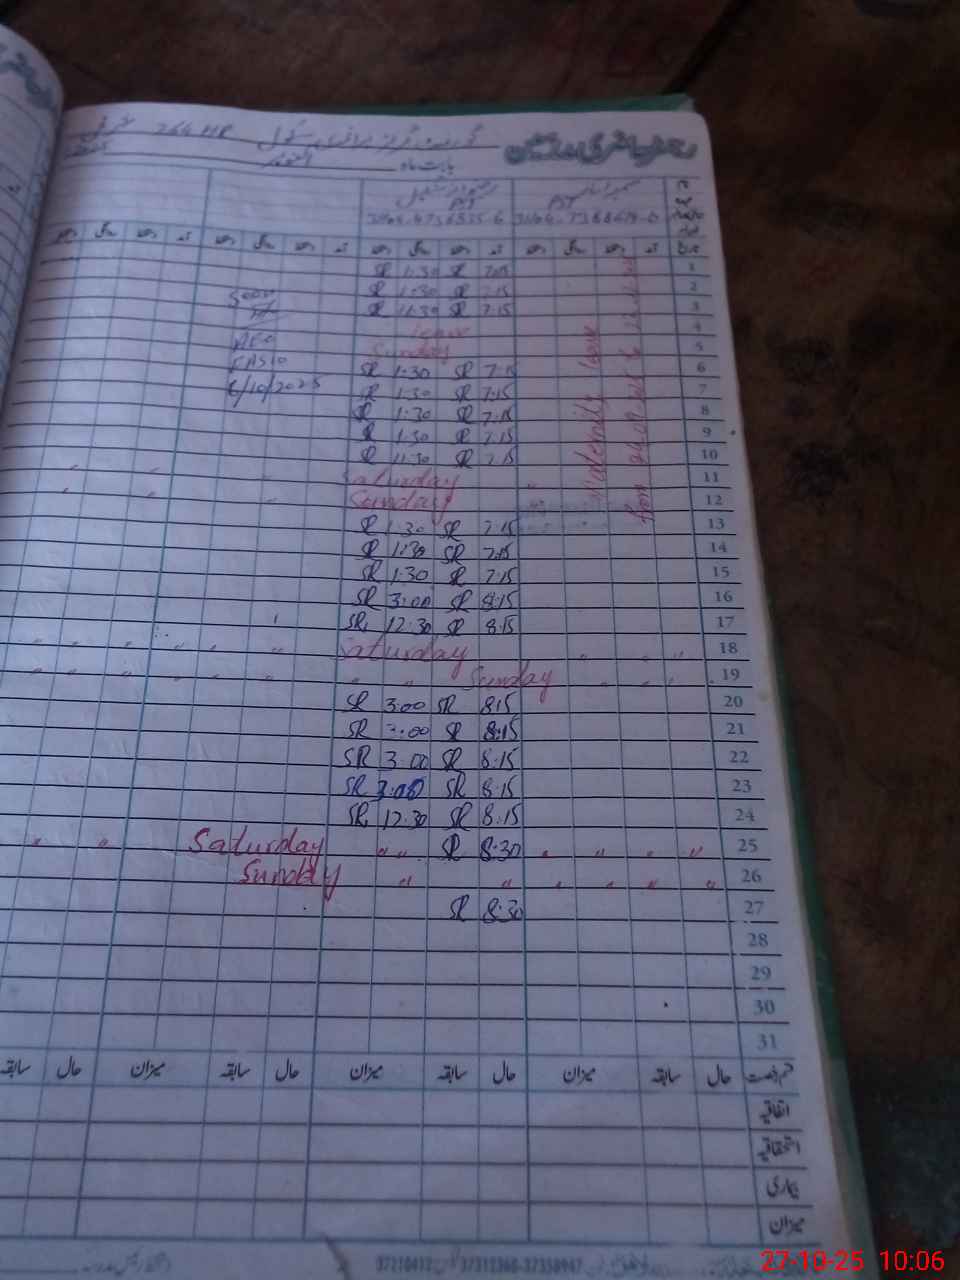 رجسٹر حاضری مدرسین
گورنمنٹ گرلز پرائمری سکول 266 HR
بابت ماہ اکتوبر
PST PST
آمد دستخط روانگی دستخط
1 7:15 SR 1:30 SR
2 7:15 SR 1:30 SR
3 7:15 SR 11:30 SR
4 leave
5 Sunday
6 7:15 SR 1:30 SR
7 7:15 SR 1:30 SR
8 7:15 SR 1:30 SR
9 7:15 SR 1:30 SR
10 7:15 SR 11:30 SR
11 Saturday
12 Sunday
13 7:15 SR 1:30 SR
14 7:15 SR 1:30 SR
15 7:15 SR 1:30 SR
16 8:15 SR 3:00 SR
17 8:15 SR 12:30 SR
18 Saturday
19 Sunday
20 8:15 SR 3:00 SR
21 8:15 SR 3:00 SR
22 8:15 SR 3:00 SR
23 8:15 SR 3:00 SR
24 8:15 SR 12:30 SR
25 8:30 SR Saturday
26 Sunday
27 8:30 SR
28
29
30
31
Maternity leave
from
Seen
AEO
6/10/2025
قسم رخصت حال سابقہ میزان حال سابقہ میزان حال سابقہ میزان حال سابقہ
اتفاقیہ
استحقاقیہ
بیماری
میزان
27-10-25 10:06